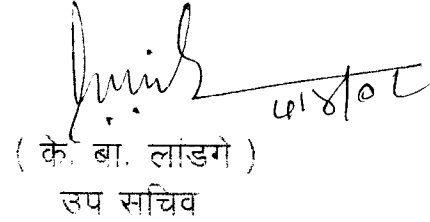 ५/४/०८
( के. बा. लांडगे )
उप सचिव